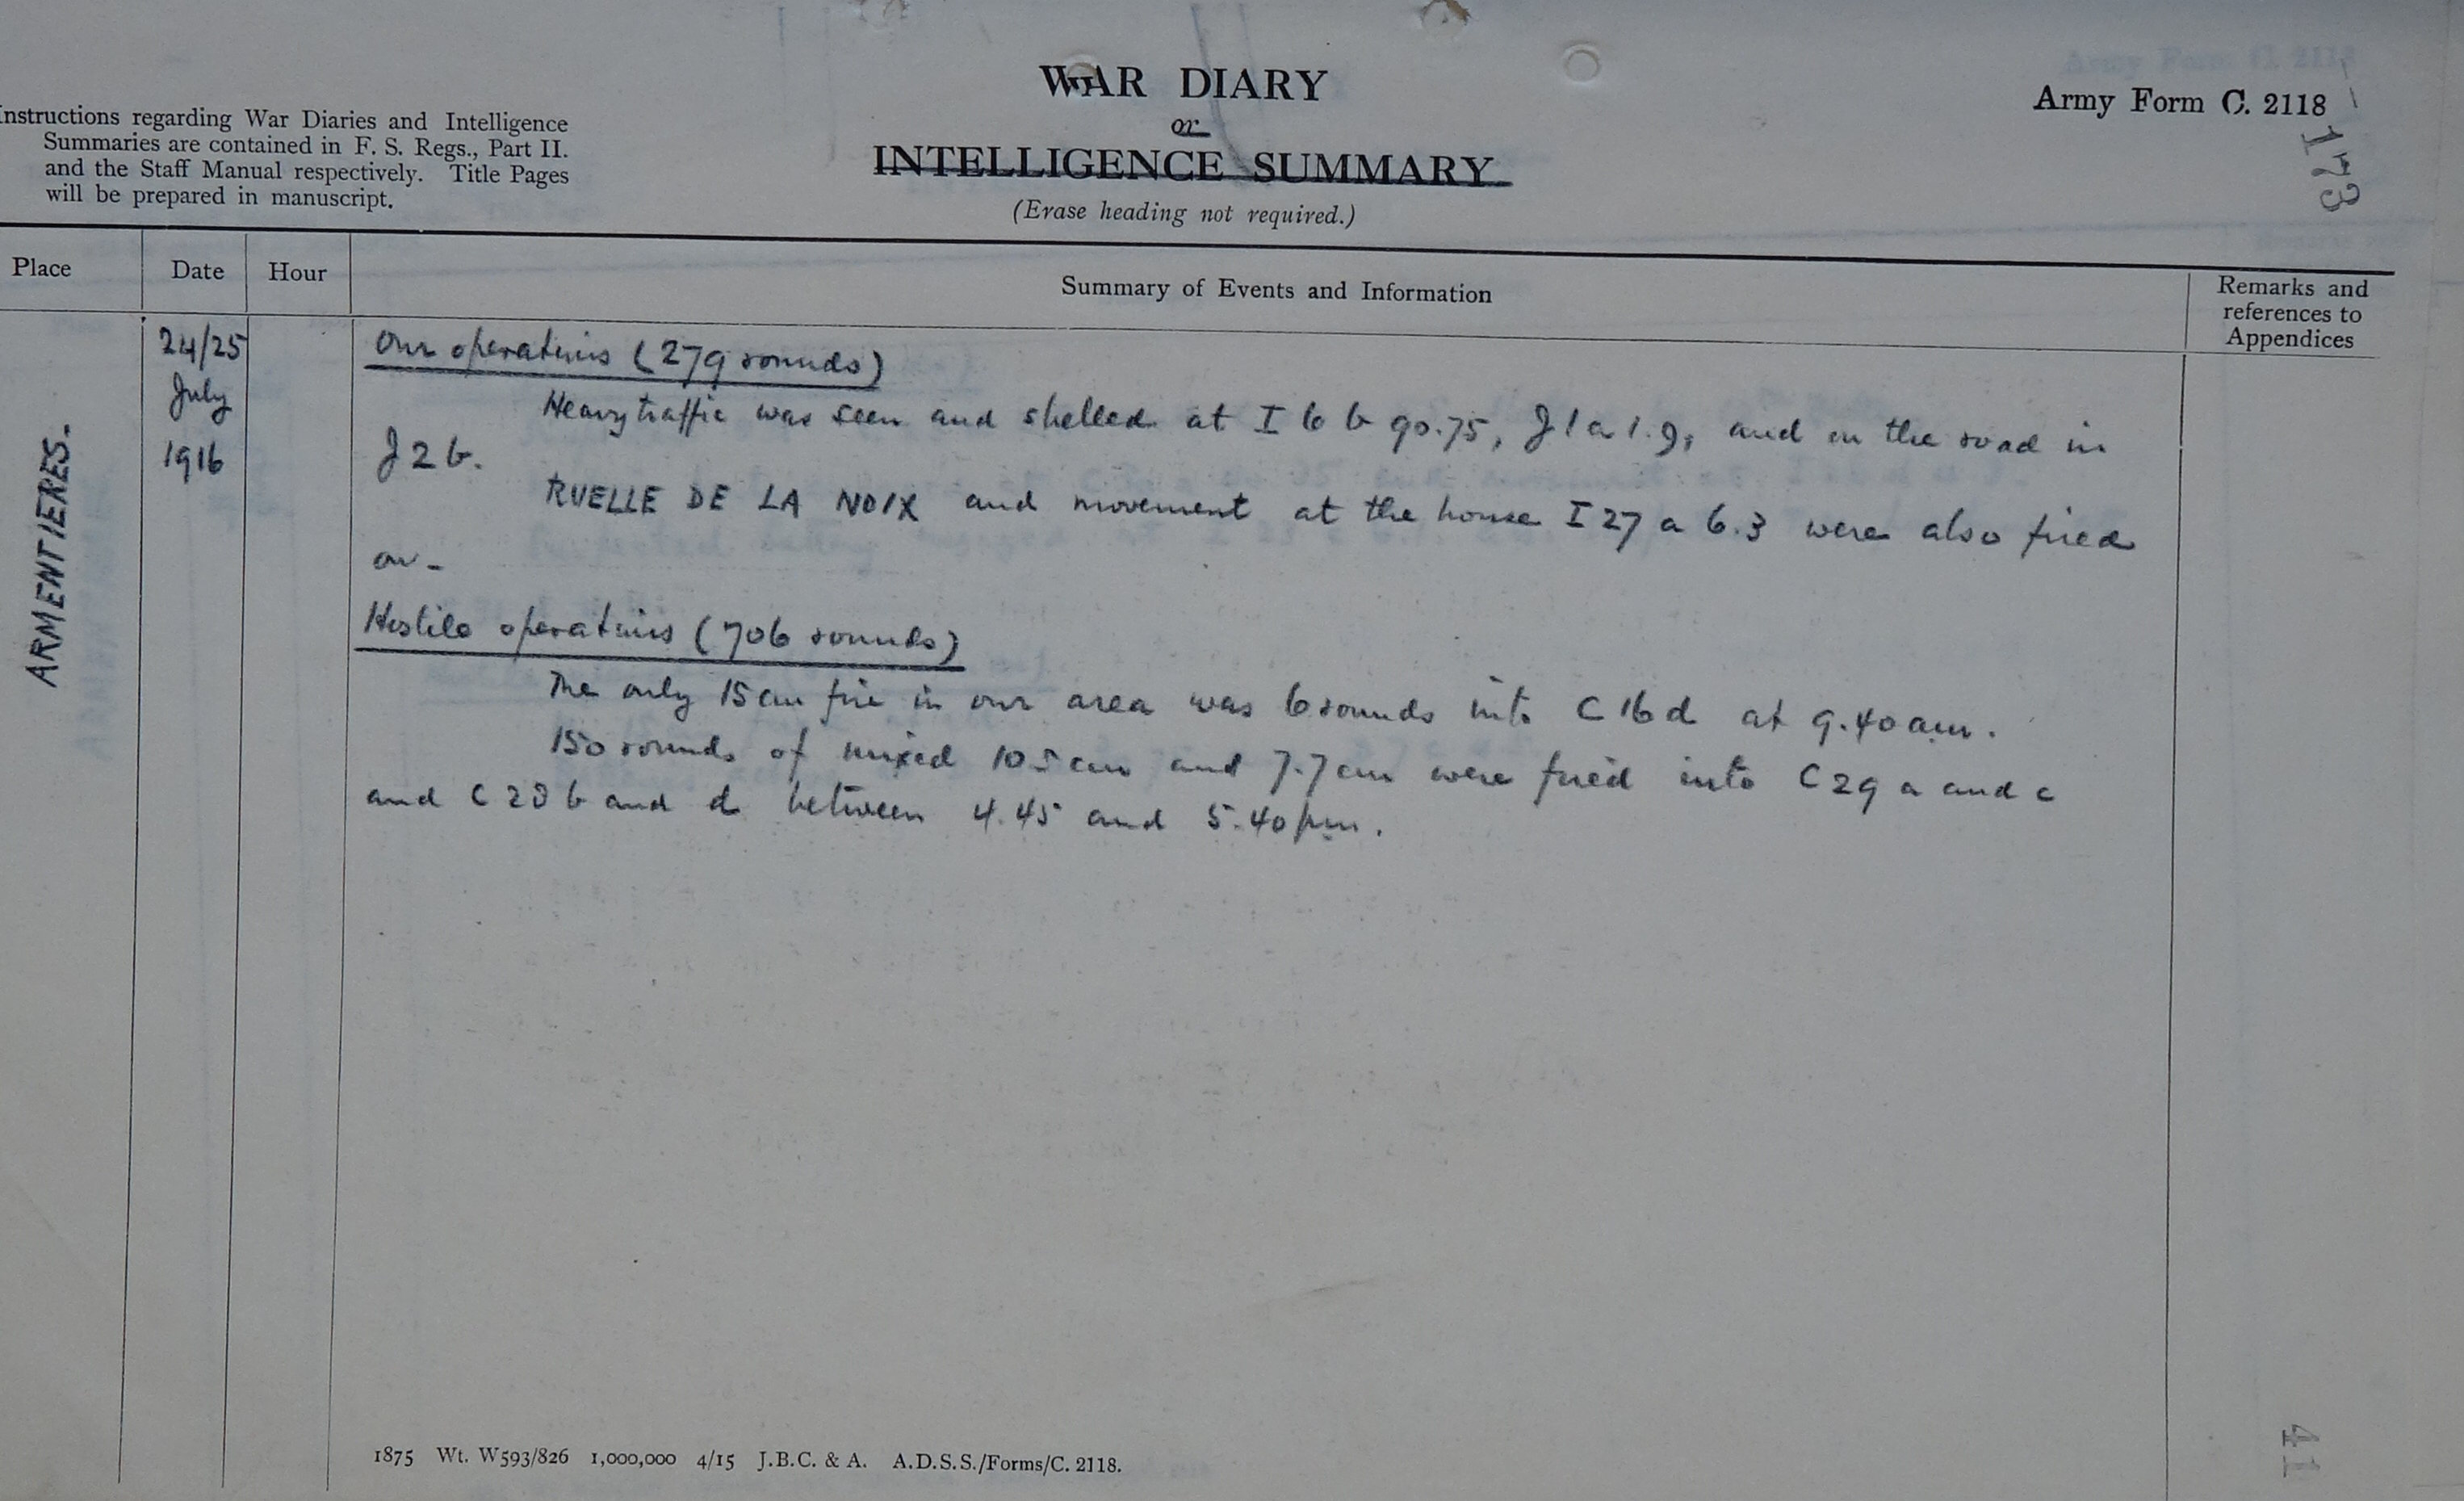 WAR DIARY
or
INTELLIGENCE SUMMARY
(Erase heading not required.)
Army Form C. 2118
173
Instructions regarding War Diaries and Intelligence
Summaries are contained in F. S. Regs., Part II.
and the Staff Manual respectively. Title Pages
will be prepared in manuscript.
Place
Date
Hour
Summary of Events and Information
Remarks and
references to
Appendices
ARMENTIERES.
24/25
July
1916
Our operations (279 rounds)
Heavy traffic was seen and shelled at I 6 b 90.75, J 1 a 1.9, and on the road in
J 2 b.
RUELLE DE LA NOIX and movement at the house I 27 a 6.3 were also fired
on -
Hostile operations (706 rounds)
The only 15 cm fire in our area was 6 rounds into C 16 d at 9.40 am.
150 rounds of mixed 10.5 cm and 7.7 cm were fired into C 29 a and c
and C 28 b and d between 4.45 and 5.40 pm.
1875 Wt. W593/826 1,000,000 4/15 J.B.C. & A. A.D.S.S./Forms/C. 2118.
41